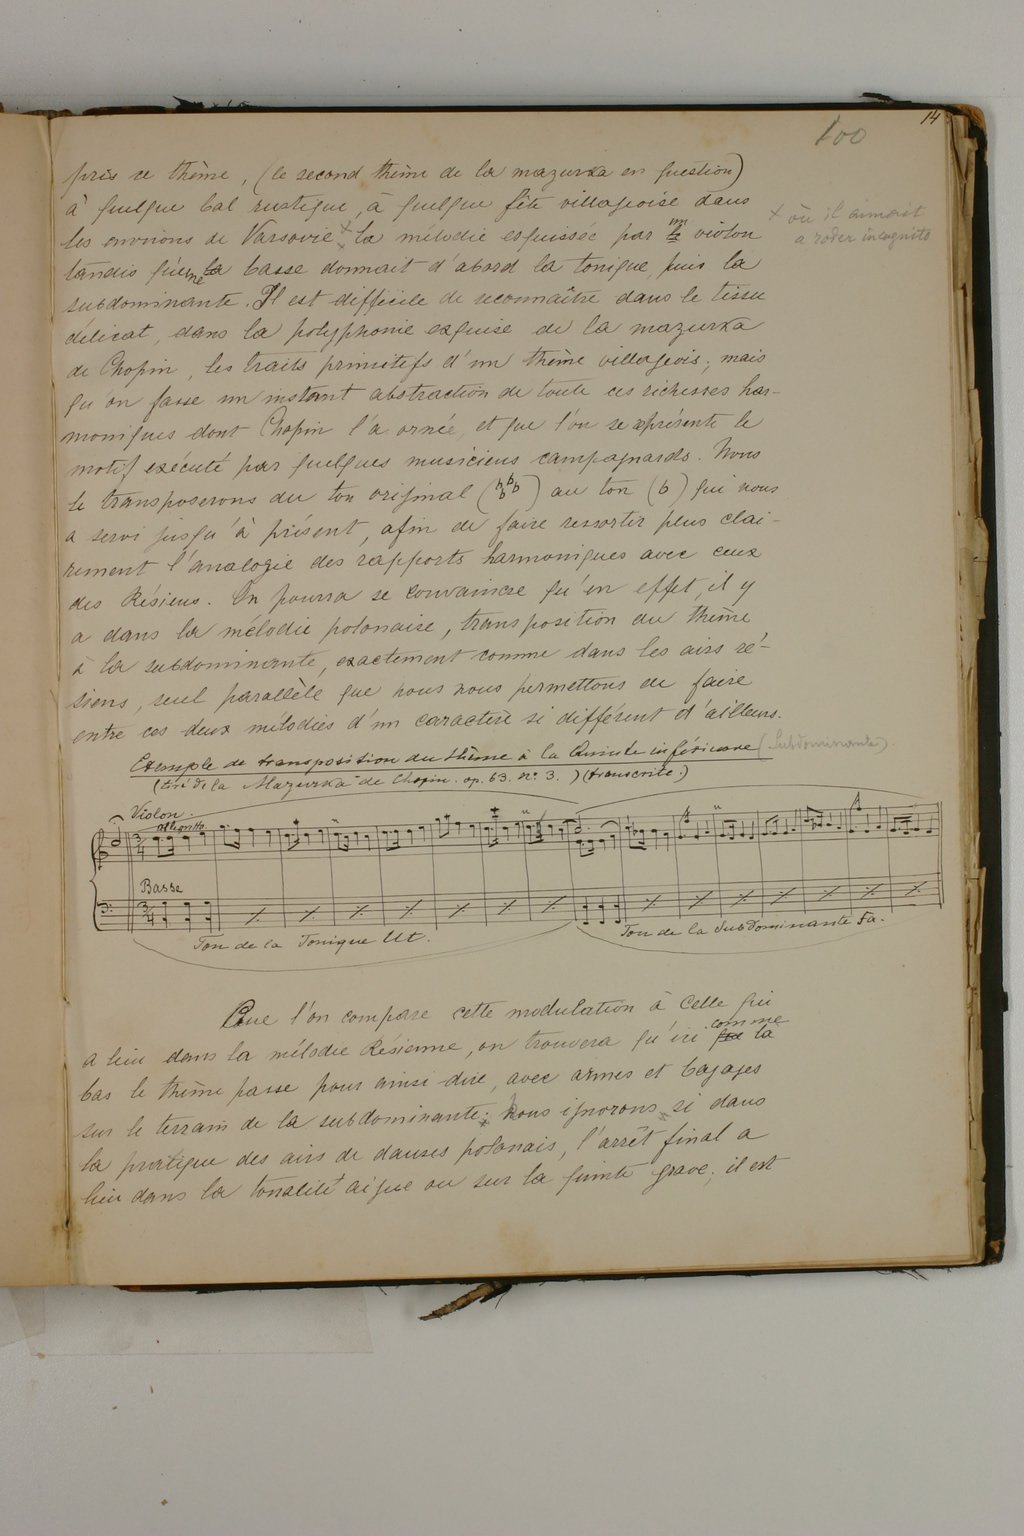 14
100
près ce thème, (le second thème de la mazurka en question)
à quelque bal rustique, à quelque fête villageoise dans
les environs de Varsovie × la mélodie esquissée par un le violon
× où il aimait
a roder incognito
tandis qu'une la basse donnait d'abord la tonique, puis la
subdominante. Il est difficile de reconnaître dans le tissu
délicat, dans la polyphonie exquise de la mazurka
de Chopin, les traits primitifs d'un thème villageois; mais
qu'on fasse un instant abstraction de toute ces richesses har-
moniques dont Chopin l'a ornée, et que l'on se représente le
motif exécuté par quelques musiciens campagnards. Nous
le transposerons du ton original (♭♭♭) au ton (♭) qui nous
a servi jusqu'à présent, afin de faire ressortir plus clai-
rement l'analogie des rapports harmoniques avec ceux
des Résiens. On pourra se convaincre qu'en effet, il y
a dans la mélodie polonaise, transposition du thème
à la subdominante, exactement comme dans les airs ré-
siens, seul parallèle que nous nous permettons de faire
entre ces deux mélodies d'un caractère si différent d'ailleurs.
Exemple de transposition du thème à la Quinte inférieure (Subdominante).
(tiré de la Mazurka de Chopin. op. 63. No. 3.) (transcrite.)
Violon.
allegretto
3/4
Basse
3/4
Ton de la Tonique Ut.
Ton de la Subdominante Fa.
Que l'on compare cette modulation à celle qui
a lieu dans la mélodie Résienne, on trouvera qu'ici comme là
bas le thème passe pour ainsi dire, avec armes et bagages
sur le terrain de la subdominante; nous ignorons si dans
la pratique des airs de danses polonais, l'arrêt final a
lieu dans la tonalité aigue ou sur la quinte grave; il est